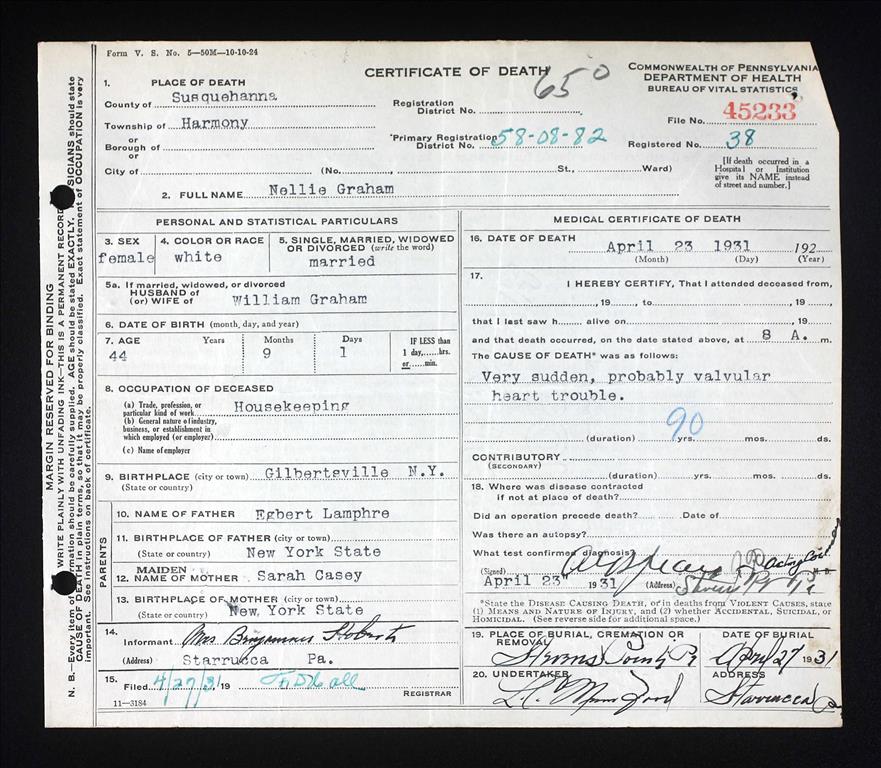 Form V. S. No. 5—50M—10-10-24
CERTIFICATE OF DEATH
650
COMMONWEALTH OF PENNSYLVANIA
DEPARTMENT OF HEALTH
BUREAU OF VITAL STATISTICS
1. PLACE OF DEATH
County of Susquehanna
Township of Harmony
or
Borough of
or
City of (No. St., Ward)
Registration
District No.
Primary Registration
District No. 58-08-82
File No. 45233
Registered No. 38
[If death occurred in a
Hospital or Institution
give its NAME instead
of street and number.]
2. FULL NAME Nellie Graham
PERSONAL AND STATISTICAL PARTICULARS
3. SEX
female
4. COLOR OR RACE
white
5. SINGLE, MARRIED, WIDOWED
OR DIVORCED (write the word)
married
5a. If married, widowed, or divorced
HUSBAND of
(or) WIFE of William Graham
6. DATE OF BIRTH (month, day, and year)
7. AGE Years Months Days IF LESS than
44 9 1 1 day,......hrs.
or......min.
8. OCCUPATION OF DECEASED
(a) Trade, profession, or
particular kind of work Housekeeping
(b) General nature of industry,
business, or establishment in
which employed (or employer)
(c) Name of employer
9. BIRTHPLACE (city or town) Gilbertsville N.Y.
(State or country)
PARENTS
10. NAME OF FATHER Egbert Lamphre
11. BIRTHPLACE OF FATHER (city or town)
(State or country) New York State
12. MAIDEN NAME OF MOTHER Sarah Casey
13. BIRTHPLACE OF MOTHER (city or town)
(State or country) New York State
14. Informant Mrs Roberts
(Address) Starrucca Pa.
15. Filed 4/27/31, 19
REGISTRAR
11—3184
MEDICAL CERTIFICATE OF DEATH
16. DATE OF DEATH April 23 1931 192
(Month) (Day) (Year)
17. I HEREBY CERTIFY, That I attended deceased from
, 19 , to , 19 ,
that I last saw h alive on , 19
and that death occurred, on the date stated above, at 8 A. m.
The CAUSE OF DEATH* was as follows:
Very sudden, probably valvular
heart trouble.
90
(duration) yrs. mos. ds.
CONTRIBUTORY
(SECONDARY)
(duration) yrs. mos. ds.
18. Where was disease contracted
if not at place of death?
Did an operation precede death? Date of
Was there an autopsy?
What test confirmed diagnosis?
(Signed) Acting M. D.
April 23 1931 (Address)
*State the DISEASE CAUSING DEATH, or in deaths from VIOLENT CAUSES, state
(1) MEANS AND NATURE OF INJURY, and (2) whether ACCIDENTAL, SUICIDAL, or
HOMICIDAL. (See reverse side for additional space.)
19. PLACE OF BURIAL, CREMATION OR
REMOVAL
Stevens Point Pa
DATE OF BURIAL
April 27 1931
20. UNDERTAKER
ADDRESS
Starrucca Pa
MARGIN RESERVED FOR BINDING
WRITE PLAINLY WITH UNFADING INK—THIS IS A PERMANENT RECORD
N. B.—Every item of information should be carefully supplied. AGE should be stated EXACTLY. PHYSICIANS should state
CAUSE OF DEATH in plain terms, so that it may be properly classified. Exact statement of OCCUPATION is very
important. See instructions on back of certificate.